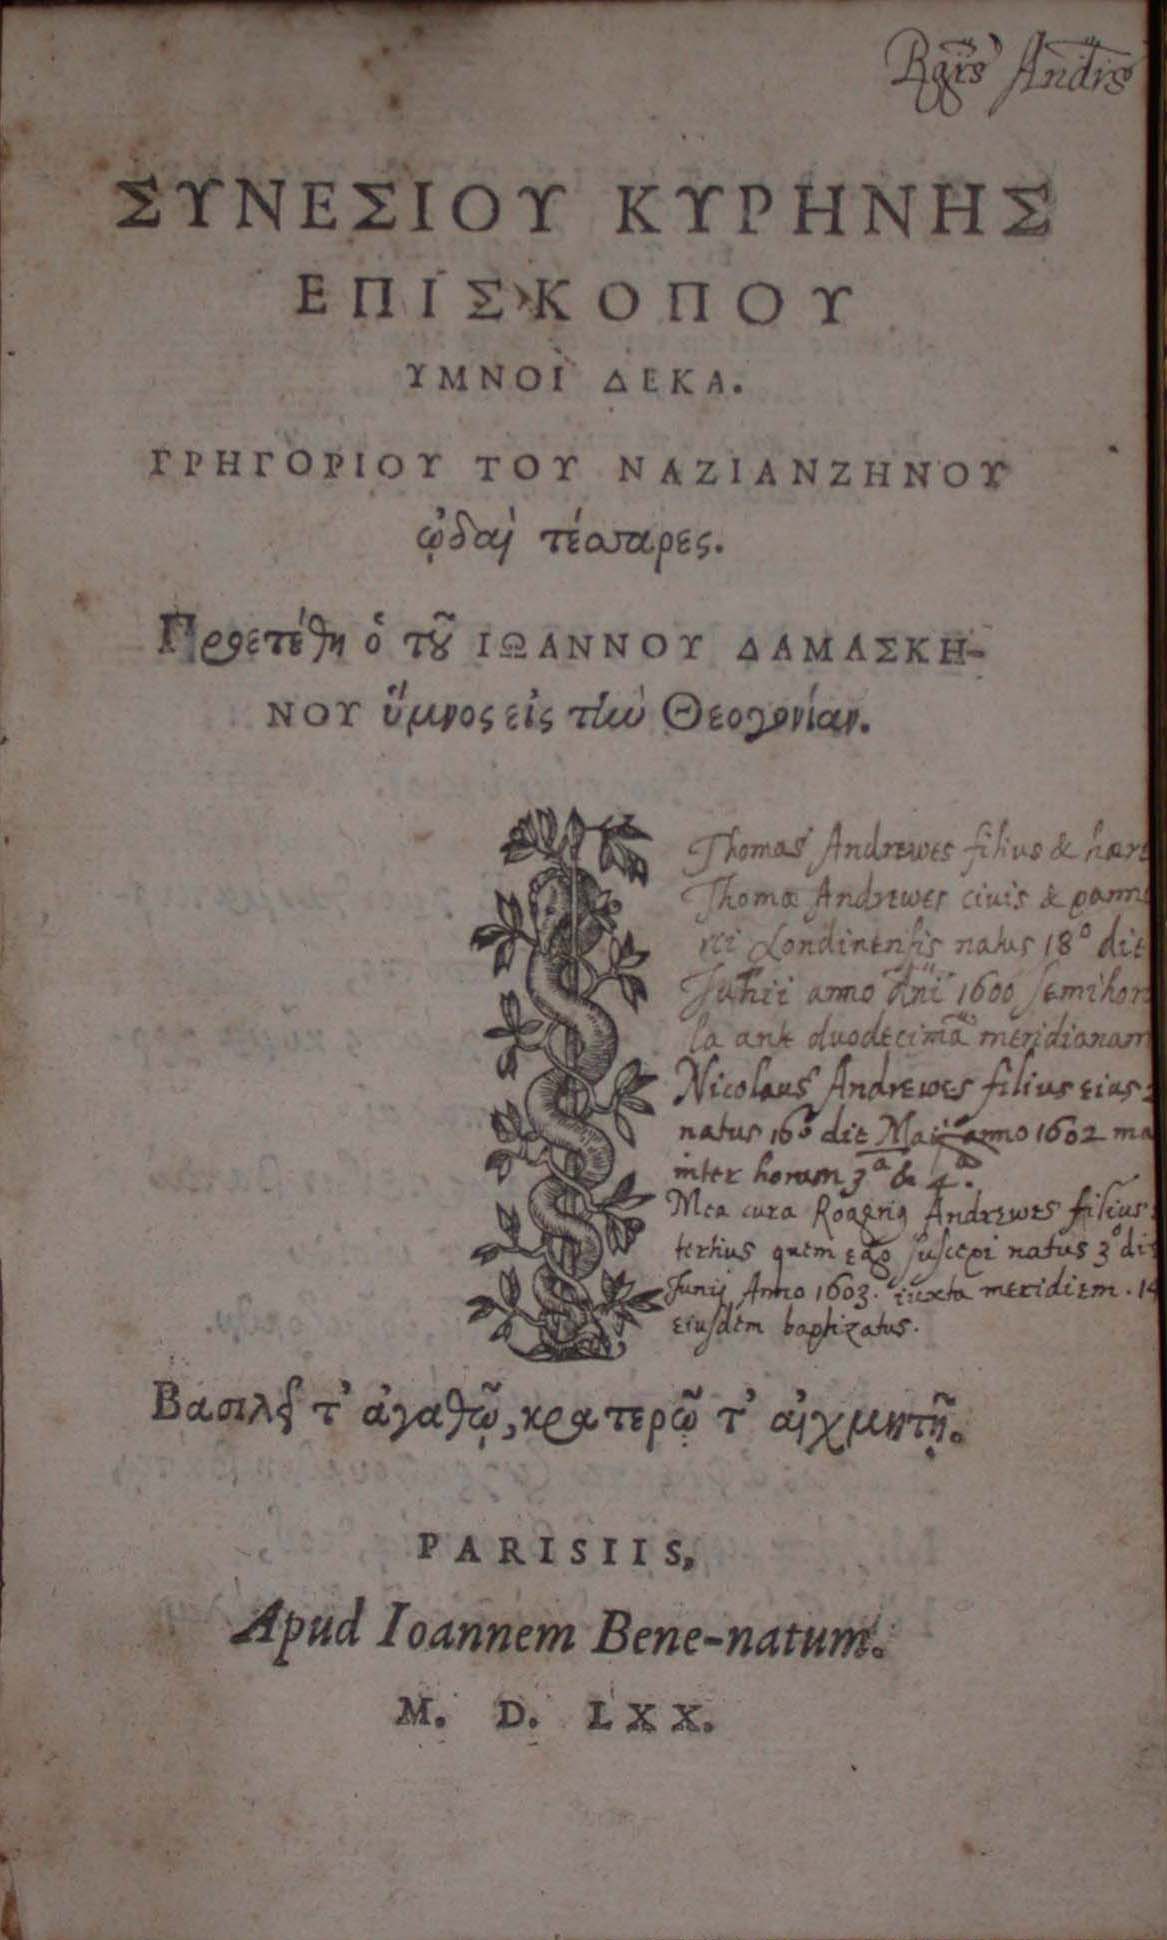 Rgris Andris
ΣΥΝΕΣΙΟΥ ΚΥΡΗΝΗΣ
ΕΠΙΣΚΟΠΟΥ
ΥΜΝΟΙ ΔΕΚΑ.
ΓΡΗΓΟΡΙΟΥ ΤΟΥ ΝΑΖΙΑΝΖΗΝΟΥ
ᾠδαὶ τέσσαρες.
Προσετέθη ὁ τοῦ ΙΩΑΝΝΟΥ ΔΑΜΑΣΚΗ-
ΝΟΥ ὕμνος εἰς τὴν Θεογονίαν.
Thomas Andrewes filius & hære
Thomæ Andrewes ciuis & panni
rii Londinensis natus 18° die
Junii anno dñi 1600 semihor
la ante duodecimã meridianam
Nicolaus Andrewes filius eius
natus 16° die Maij anno 1602 ma
inter horam 3ª & 4ª.
Mea cura Rogerig Andrewes filius
tertius quem ego suscepi natus 3° die
Junij Anno 1603. iuxta meridiem. 14
eiusdem baptizatus.
Βασιλεῖ τ' ἀγαθῷ, κρατερῷ τ' αἰχμητῇ.
PARISIIS,
Apud Ioannem Bene-natum.
M. D. LXX.